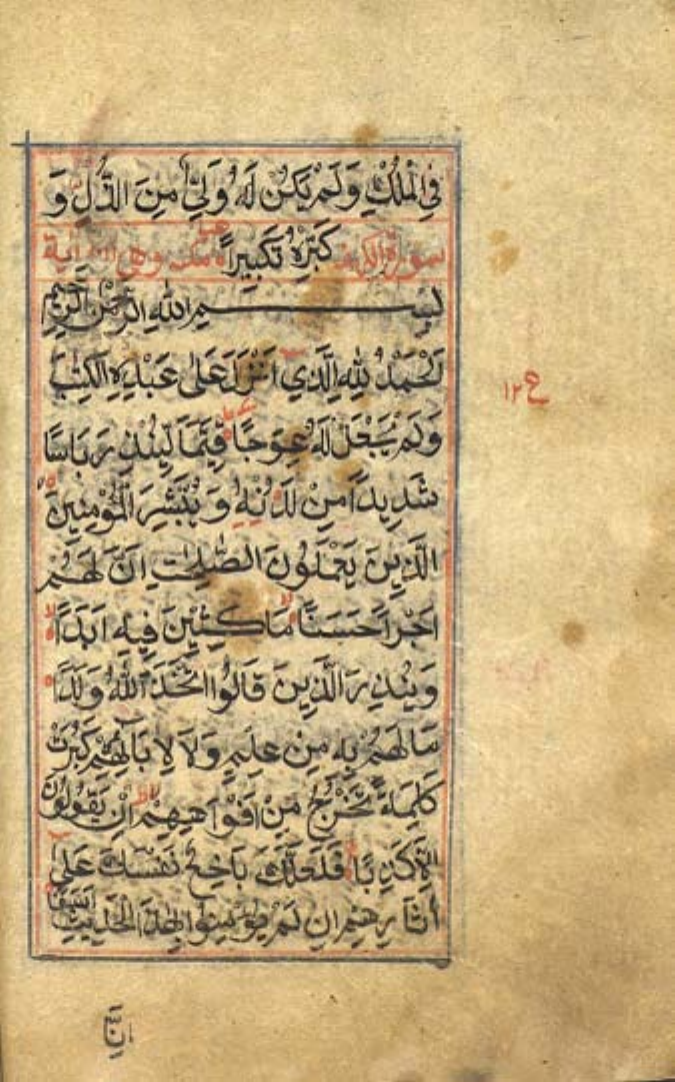 فِي الْمُلْكِ وَلَمْ يَكُنْ لَهُ وَلِيٌّ مِنَ الذُّلِّ وَ
كَبِّرْهُ تَكْبِيرًا
سورة الكهف مكية وهي آية
بسم الله الرحمن الرحيم
اَلْحَمْدُ لِلّٰهِ الَّذِي اَنْزَلَ عَلٰى عَبْدِهِ الْكِتٰبَ
وَلَمْ يَجْعَلْ لَهُ عِوَجًا قَيِّمًا لِيُنْذِرَ بَاْسًا
شَدِيدًا مِنْ لَدُنْهُ وَيُبَشِّرَ الْمُؤْمِنِينَ
الَّذِينَ يَعْمَلُونَ الصّٰلِحٰتِ اِنَّ لَهُمْ
اَجْرًا حَسَنًا مَاكِثِينَ فِيهِ اَبَدًا
وَيُنْذِرَ الَّذِينَ قَالُوا اتَّخَذَ اللّٰهُ وَلَدًا
مَا لَهُمْ بِهِ مِنْ عِلْمٍ وَلَا لِاٰبَائِهِمْ كَبُرَتْ
كَلِمَةً تَخْرُجُ مِنْ اَفْوَاهِهِمْ اِنْ يَقُولُونَ
اِلَّا كَذِبًا فَلَعَلَّكَ بَاخِعٌ نَفْسَكَ عَلٰى
اٰثَارِهِمْ اِنْ لَمْ يُؤْمِنُوا بِهٰذَا الْحَدِيثِ اَسَفًا
اِنَّا
ع ١٢